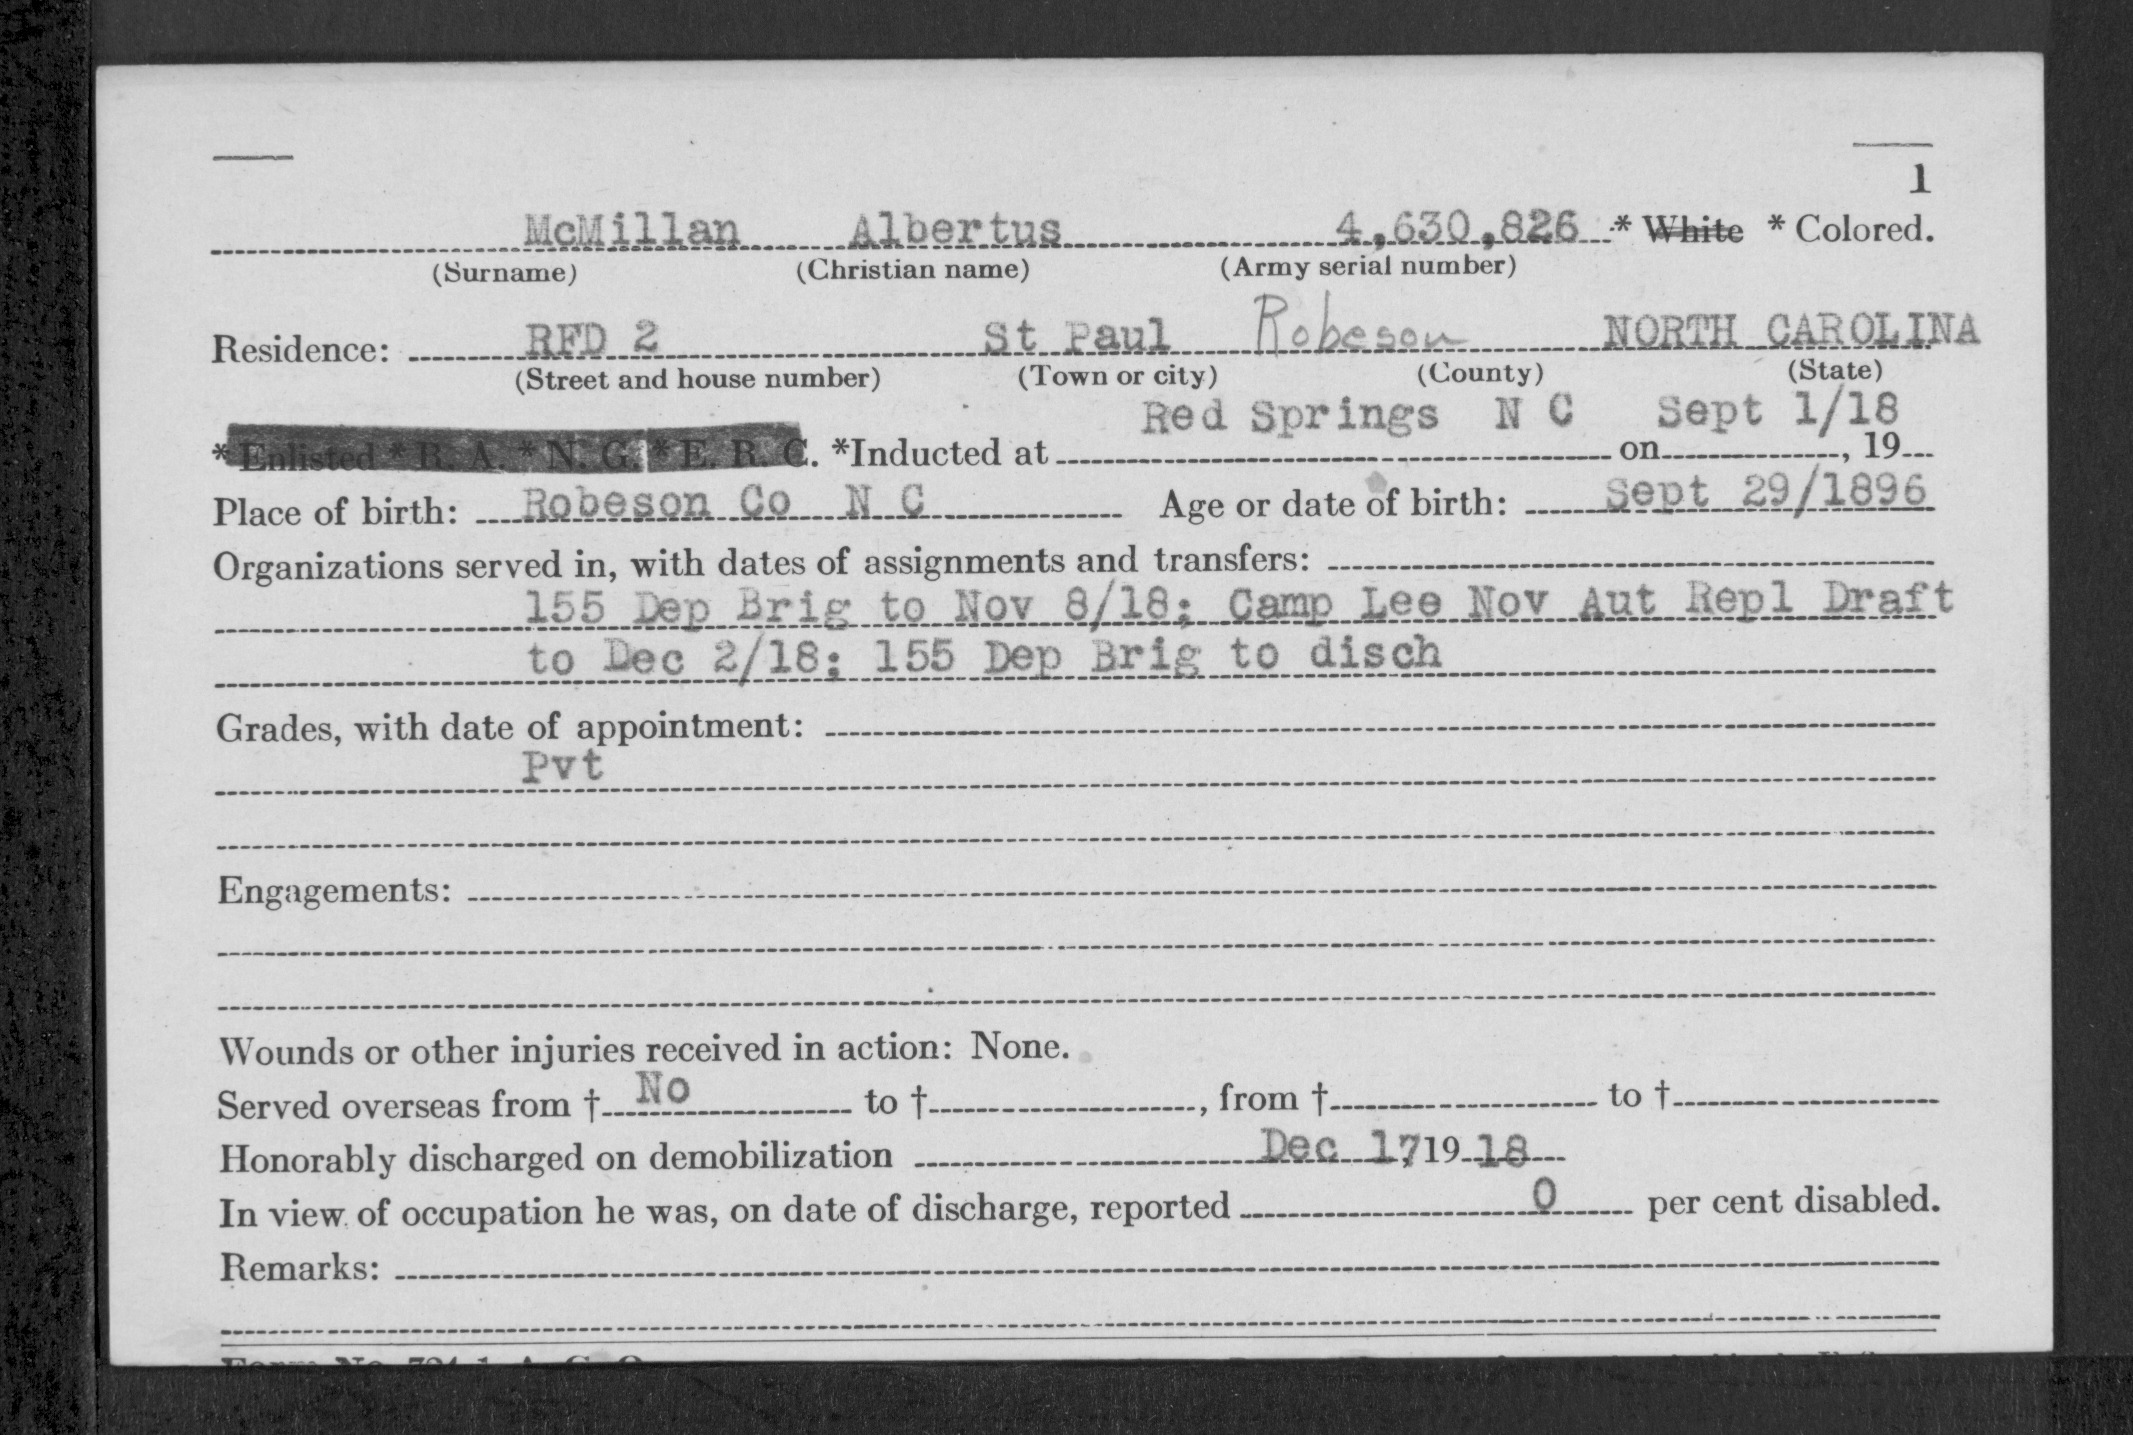 1
McMillan Albertus 4,630,826 * White * Colored.
(Surname) (Christian name) (Army serial number)
Residence: RFD 2 St Paul Robeson NORTH CAROLINA
(Street and house number) (Town or city) (County) (State)
Red Springs N C Sept 1/18
* Enlisted * R. A. * N. G. * E. R. C. *Inducted at on , 19
Place of birth: Robeson Co N C Age or date of birth: Sept 29/1896
Organizations served in, with dates of assignments and transfers:
155 Dep Brig to Nov 8/18; Camp Lee Nov Aut Repl Draft
to Dec 2/18; 155 Dep Brig to disch
Grades, with date of appointment:
Pvt
Engagements:
Wounds or other injuries received in action: None.
Served overseas from † No to † , from † to †
Honorably discharged on demobilization Dec 17, 19 18
In view of occupation he was, on date of discharge, reported 0 per cent disabled.
Remarks:
Form No. 724-1, A. G. O.